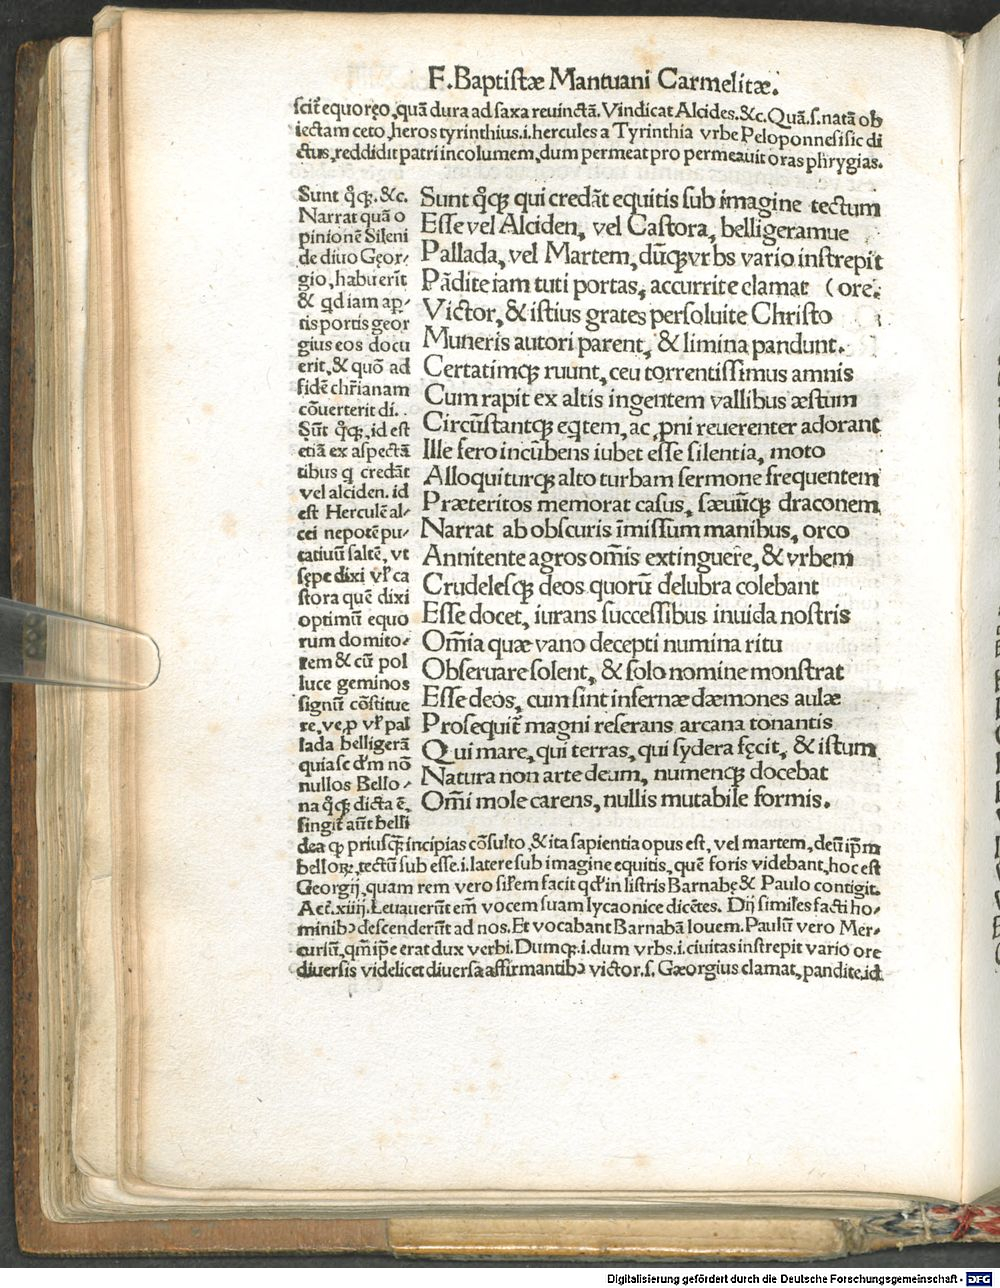 F.Baptistæ Mantuani Carmelitæ.
scit̃ equoreo,quã dura ad saxa reuinctã. Vindicat Alcides.&c.Quã.s.natã ob
iectam ceto,heros tyrinthius.i.hercules a Tyrinthia vrbe Peloponnesi sic di
ctus,reddidit patri incolumem,dum permeat pro permeauit oras phrygias.
Sunt q̊q;.&c.
Narrat quã o
pinionẽ Sileni
de diuo Geor-
gio,habuerĩt
& qd iam ap-
tis portis geor
gius eos docu
erit,& quõ ad
fidẽ chr̃ianam
cõuerterit di.
Sũt q̊q;,id est
etiã ex aspectã
tibus q credãt
vel alciden. id
est Herculẽ al-
cei nepotẽ pu-
tatiuũ saltẽ, vt
sępe dixi vl̃ ca
stora quẽ dixi
optimũ equo
rum domito-
rem & cũ pol
luce geminos
signũ cõstitue
re,ve,p vl̃ pal
lada belligerã
quia sc dr̃m nõ
nullos Bello-
na q̊q; dicta ẽ,
fingit̃ aũt belli
Sunt q̊q; qui credãt equitis sub imagine tectum
Esse vel Alciden, vel Castora, belligeramue
Pallada, vel Martem, dũq; vrbs vario instrepit
Pãdite iam tuti portas, accurrite clamat (ore;
Victor, & istius grates persoluite Christo
Muneris autori parent, & limina pandunt.
Certatimq; ruunt, ceu torrentissimus amnis
Cum rapit ex altis ingentem vallibus æstum
Circũstantq; eq̃tem, ac ꝓni reuerenter adorant
Ille fero incũbens iubet esse silentia, moto
Alloquiturq; alto turbam sermone frequentem
Præteritos memorat casus, sæuũq; draconem
Narrat ab obscuris ĩmissum manibus, orco
Annitente agros om̃is extinguere, & vrbem
Crudelesq; deos quorũ delubra colebant
Esse docet, iurans successibus inuida nostris
Om̃ia quæ vano decepti numina ritu
Obseruare solent, & solo nomine monstrat
Esse deos, cum sint infernæ dæmones aulæ
Prosequit̃ magni reserans arcana tonantis
Qui mare, qui terras, qui sydera fęcit, & istum
Natura non arte deum, numenq; docebat
Om̃i mole carens, nullis mutabile formis.
dea qp priusq̃ incipias cõsulto,& ita sapientia opus est, vel martem, deũ ip̃m
belloꝝ,tectũ sub esse.i.latere sub imagine equitis,quẽ foris videbant,hoc est
Georgij,quam rem vero sil̃em facit qd̃ in listris Barnabę & Paulo contigit.
Act̃.xiiij.Leuauerũt em̃ vocem suam lycaonice dicẽtes. Dij simil̃es facti ho-
minibꝰ descenderũt ad nos. Et vocabant Barnabã Iouem. Paulũ vero Mer-
curiũ,qm̃ ip̃e erat dux verbi. Dumq;.i.dum vrbs.i.ciuitas instrepit vario ore
diuersis videlicet diuersa affirmantibꝰ victor.s. Gæorgius clamat,pandite.id
Digitalisierung gefördert durch die Deutsche Forschungsgemeinschaft - DFG